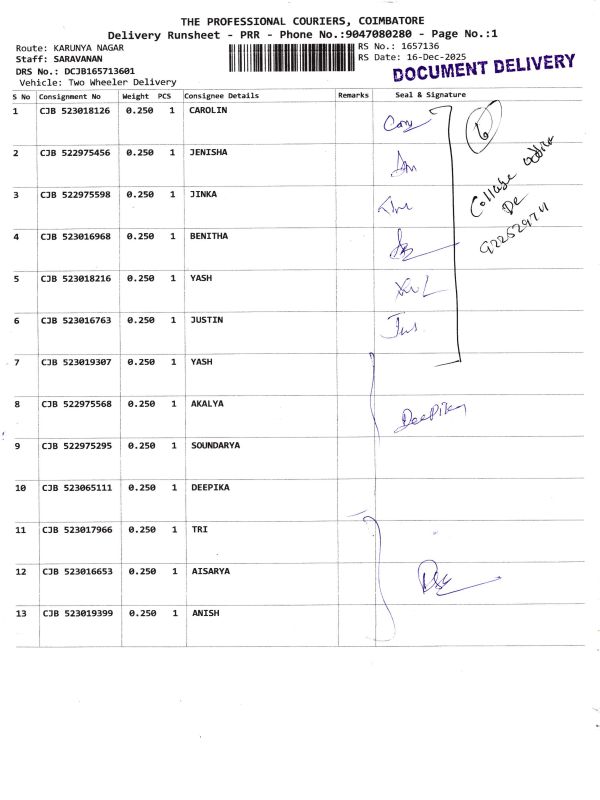 THE PROFESSIONAL COURIERS, COIMBATORE
Delivery Runsheet - PRR - Phone No.:9047080280 - Page No.:1
Route: KARUNYA NAGAR
RS No.: 1657136
Staff: SARAVANAN
RS Date: 16-Dec-2025
DRS No.: DCJB165713601
DOCUMENT DELIVERY
Vehicle: Two Wheeler Delivery
S No Consignment No Weight PCS Consignee Details Remarks Seal & Signature
1 CJB 523018126 0.250 1 CAROLIN
6
2 CJB 522975456 0.250 1 JENISHA
3 CJB 522975598 1 0.250 JINKA
4 CJB 523016968 0.250 1 BENITHA
5 CJB 523018216 0.250 1 YASH
6 CJB 523016763 0.250 1 JUSTIN
7 CJB 523019307 0.250 1 YASH
8 CJB 522975568 0.250 1 AKALYA
Deepika
9 CJB 522975295 0.250 1 SOUNDARYA
10 CJB 523065111 0.250 1 DEEPIKA
11 CJB 523017966 0.250 1 TRI
12 CJB 523016653 0.250 1 AISARYA
13 CJB 523019399 0.250 1 ANISH